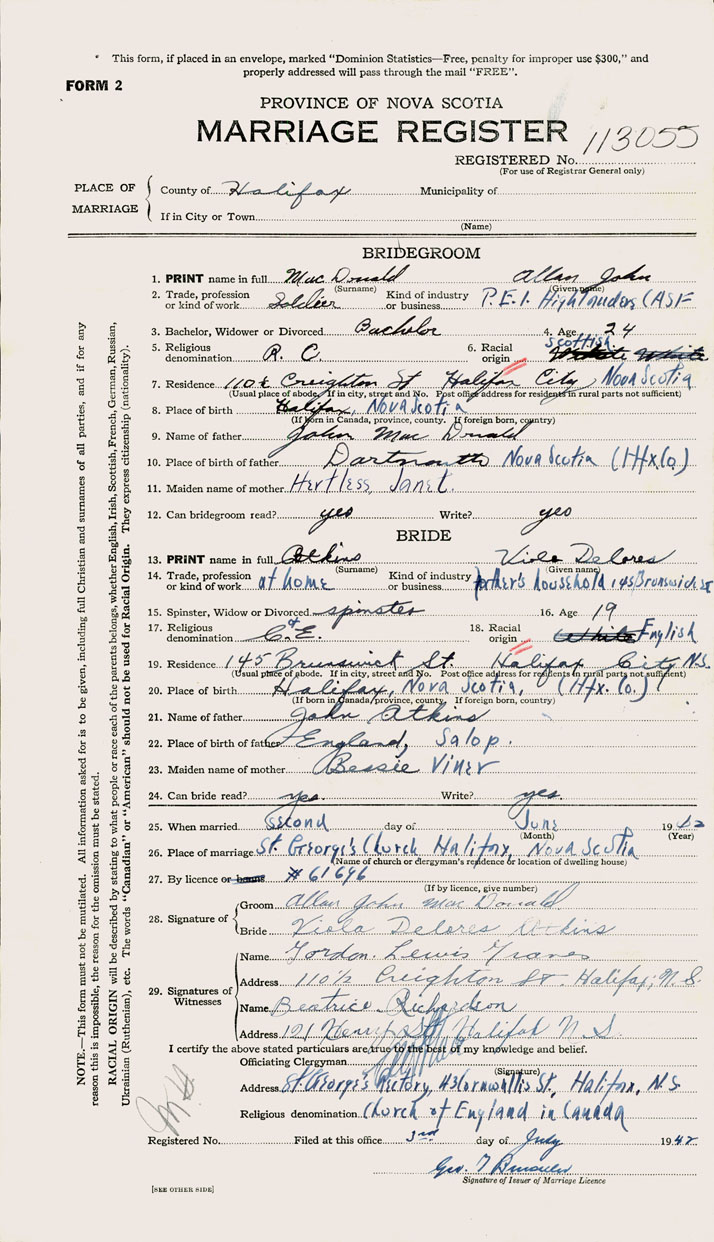 * This form, if placed in an envelope, marked "Dominion Statistics—Free, penalty for improper use $300," and
properly addressed will pass through the mail "FREE".
FORM 2
PROVINCE OF NOVA SCOTIA
MARRIAGE REGISTER 113055
REGISTERED No.
(For use of Registrar General only)
PLACE OF MARRIAGE
County of Halifax Municipality of
If in City or Town
(Name)
BRIDEGROOM
1. PRINT name in full MacDonald Allan John
(Surname) (Given name)
2. Trade, profession or kind of work Soldier Kind of industry or business P.E.I. Highlanders (ASF
3. Bachelor, Widower or Divorced Bachelor 4. Age 24
5. Religious denomination R. C. 6. Racial origin Scottish White White
7. Residence 110½ Creighton St Halifax City, Nova Scotia
(Usual place of abode. If in city, street and No. Post office address for residents in rural parts not sufficient)
8. Place of birth Halifax, Nova Scotia
(If born in Canada, province, county. If foreign born, country)
9. Name of father John MacDonald
10. Place of birth of father Dartmouth Nova Scotia (Hfx. Co.)
11. Maiden name of mother Hertless, Janet.
12. Can bridegroom read? yes Write? yes
BRIDE
13. PRINT name in full Atkins Viola Delores
(Surname) (Given name)
14. Trade, profession or kind of work at home Kind of industry or business father's household 145 Brunswick St
15. Spinster, Widow or Divorced spinster 16. Age 19
17. Religious denomination C. of E. 18. Racial origin White English
19. Residence 145 Brunswick St. Halifax City N.S.
(Usual place of abode. If in city, street and No. Post office address for residents in rural parts not sufficient)
20. Place of birth Halifax, Nova Scotia, (Hfx. Co.)
(If born in Canada, province, county. If foreign born, country)
21. Name of father John Atkins
22. Place of birth of father England, Salop.
23. Maiden name of mother Bessie Viner
24. Can bride read? yes. Write? yes.
25. When married second day of June 1942
(Month) (Year)
26. Place of marriage St. George's Church Halifax, Nova Scotia
(Name of church or clergyman's residence or location of dwelling house)
27. By licence or banns # 61696
(If by licence, give number)
28. Signature of
Groom Allan John MacDonald
Bride Viola Delores Atkins
29. Signatures of Witnesses
Name Gordon Lewis Graves
Address 110½ Creighton St. Halifax, N.S.
Name Beatrice Richardson
Address 121 Henry St Halifax N.S.
I certify the above stated particulars are true to the best of my knowledge and belief.
Officiating Clergyman
(Signature)
Address St. George's Rectory, 43 Cornwallis St., Halifax, N.S.
Religious denomination Church of England in Canada
Registered No. Filed at this office 3rd day of July 1942
Geo.
Signature of Issuer of Marriage Licence
[SEE OTHER SIDE]
NOTE.—This form must not be mutilated. All information asked for is to be given, including full Christian and surnames of all parties, and if for any
reason this is impossible, the reason for the omission must be stated.
RACIAL ORIGIN will be described by stating to what people or race each of the parents belongs, whether English, Irish, Scottish, French, German, Russian,
Ukrainian (Ruthenian), etc. The words "Canadian" or "American" should not be used for Racial Origin. They express citizenship (nationality).